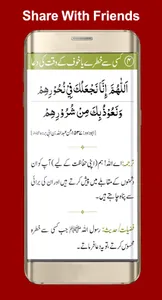 Share With Friends
کسی سے خطرے یا خوف کے وقت کی دعا
اَللّٰهُمَّ اِنَّا نَجْعَلُكَ فِيْ نُحُوْرِهِمْ
وَنَعُوْذُ بِكَ مِنْ شُرُوْرِهِمْ
ترجمہ: اے اللہ! ہم (اپنی حفاظت کے لیے) آپ کو ان
دشمنوں کے مقابلے میں پیش کرتے ہیں اور ان کی برائی
سے پناہ چاہتے ہیں۔
فضیلت حدیث: رسول اللہ ﷺ جب کسی سے خطرہ
محسوس کرتے، تو یہ دعا فرماتے۔